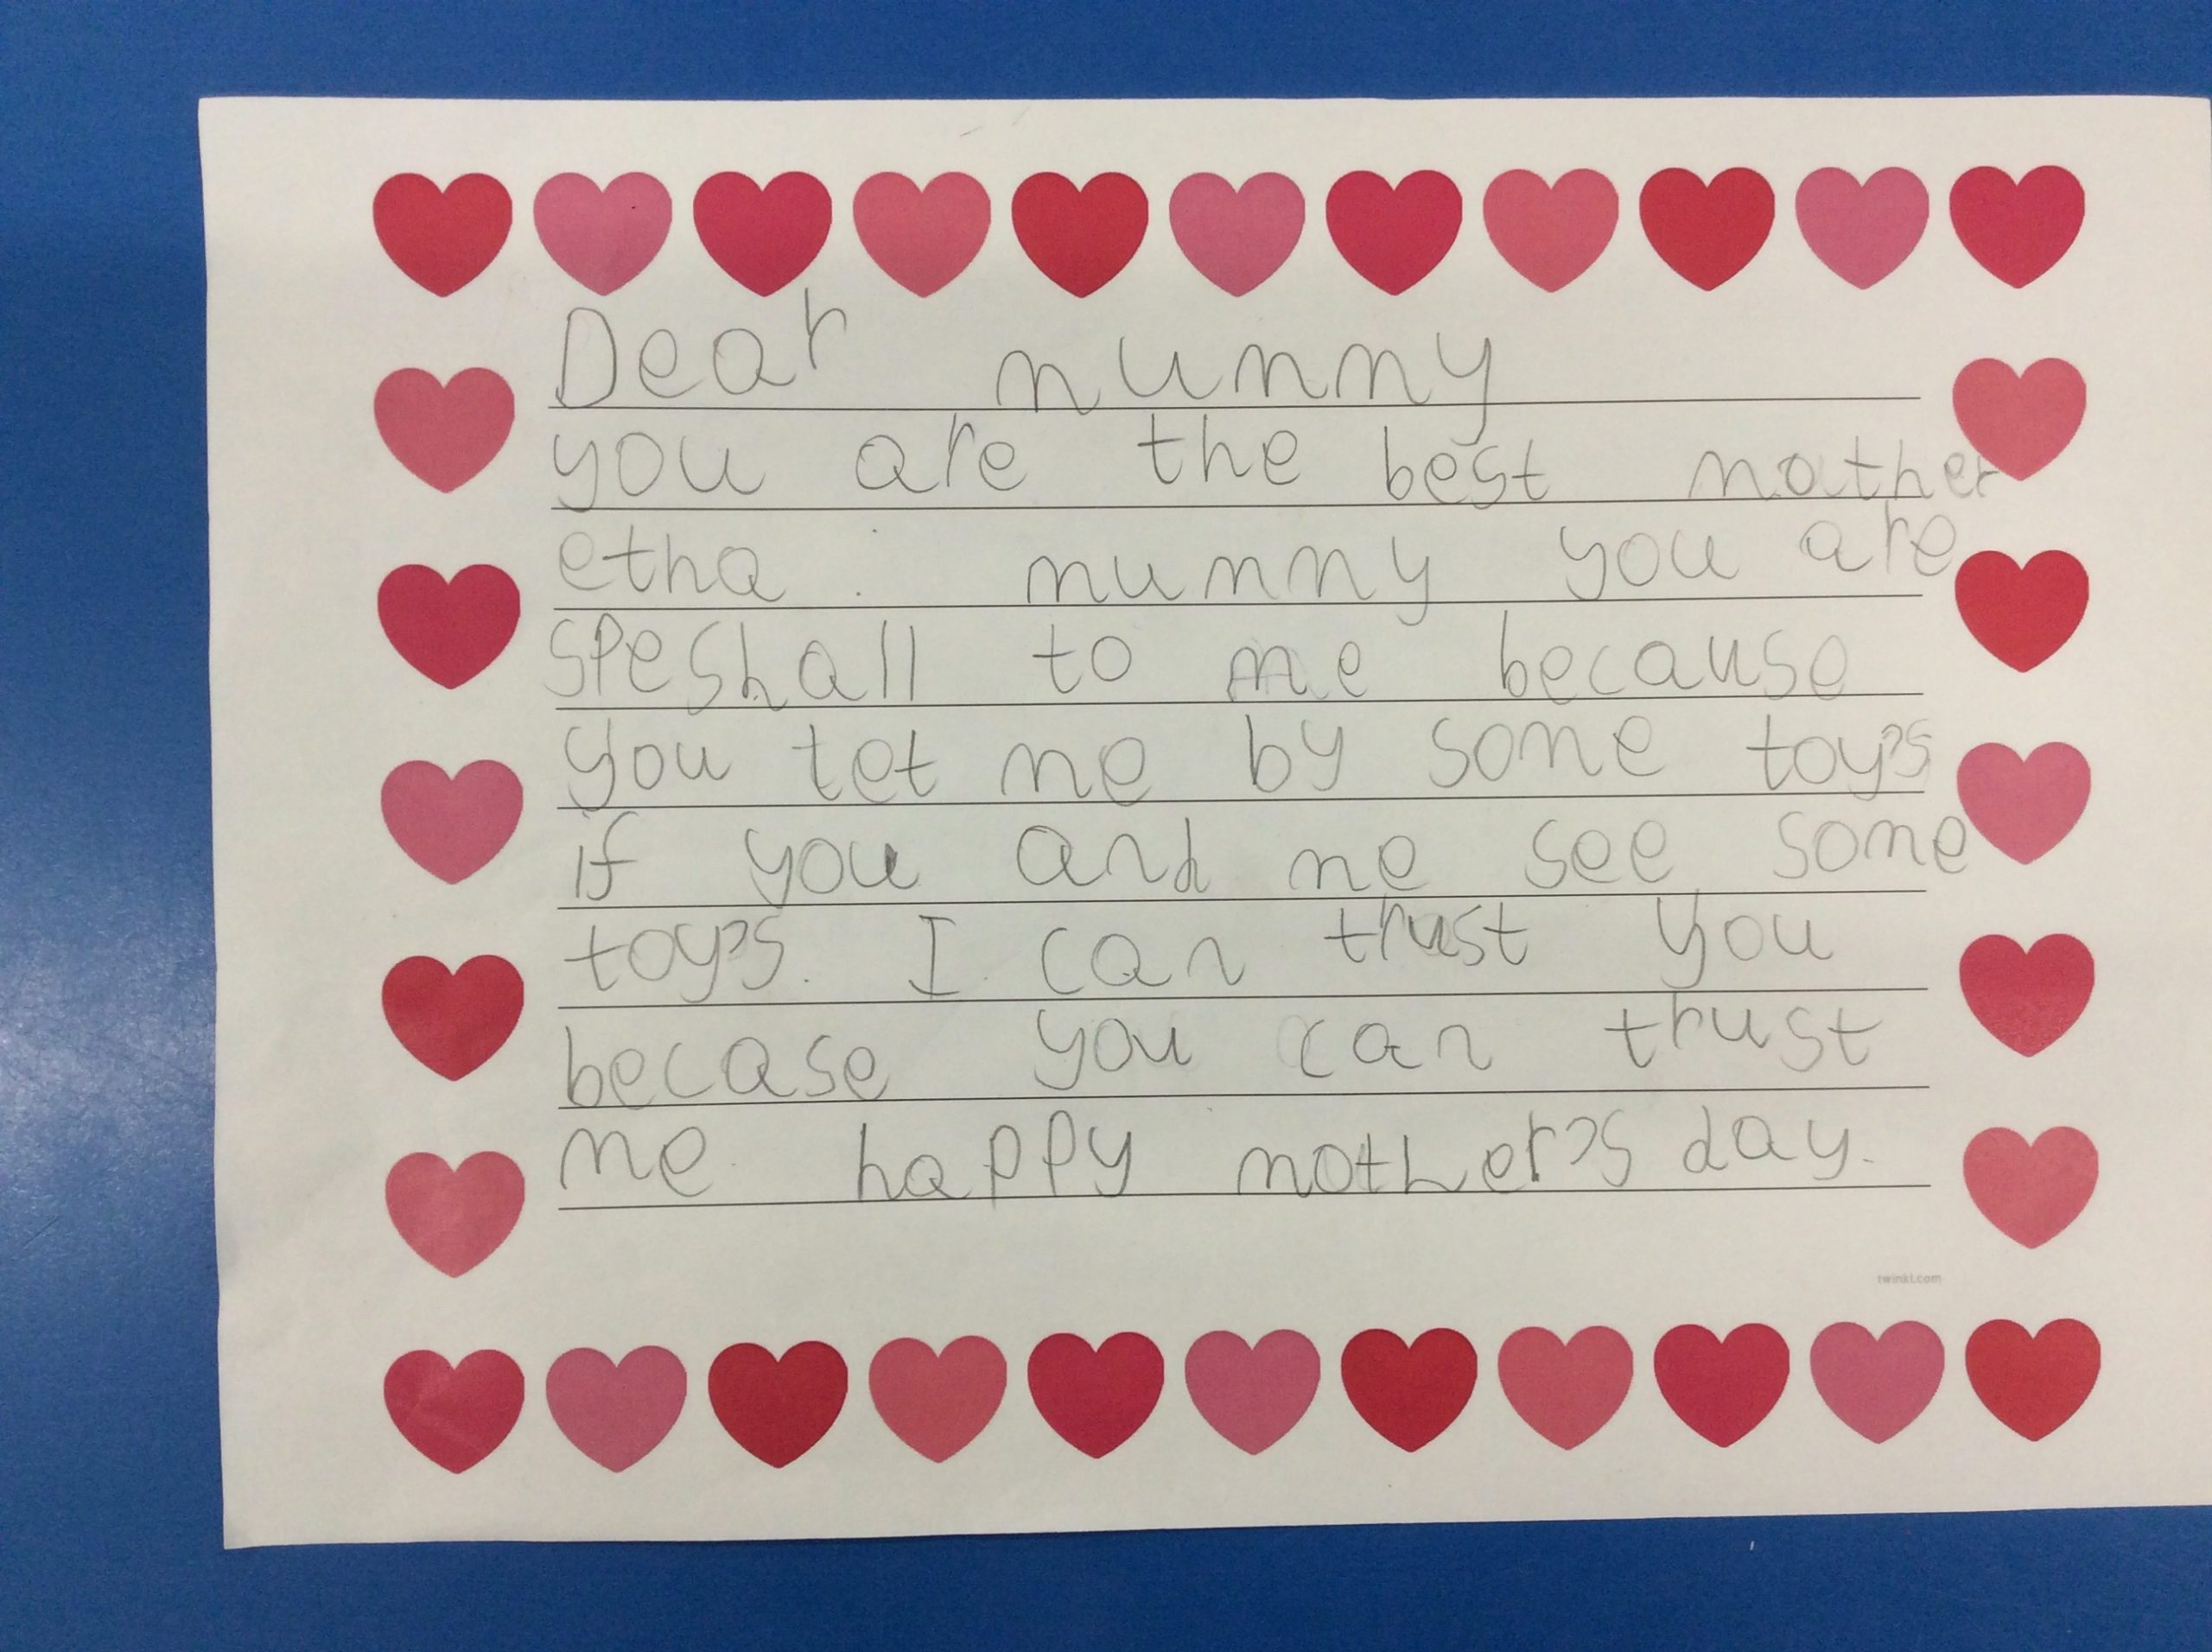 Dear mummy
you are the best mother
etha. mummy you are
speshall to me because
you let me by some toy's
if you and me see some
toy's. I can trust you
becase you can trust
me happy mother's day.
twinkl.com